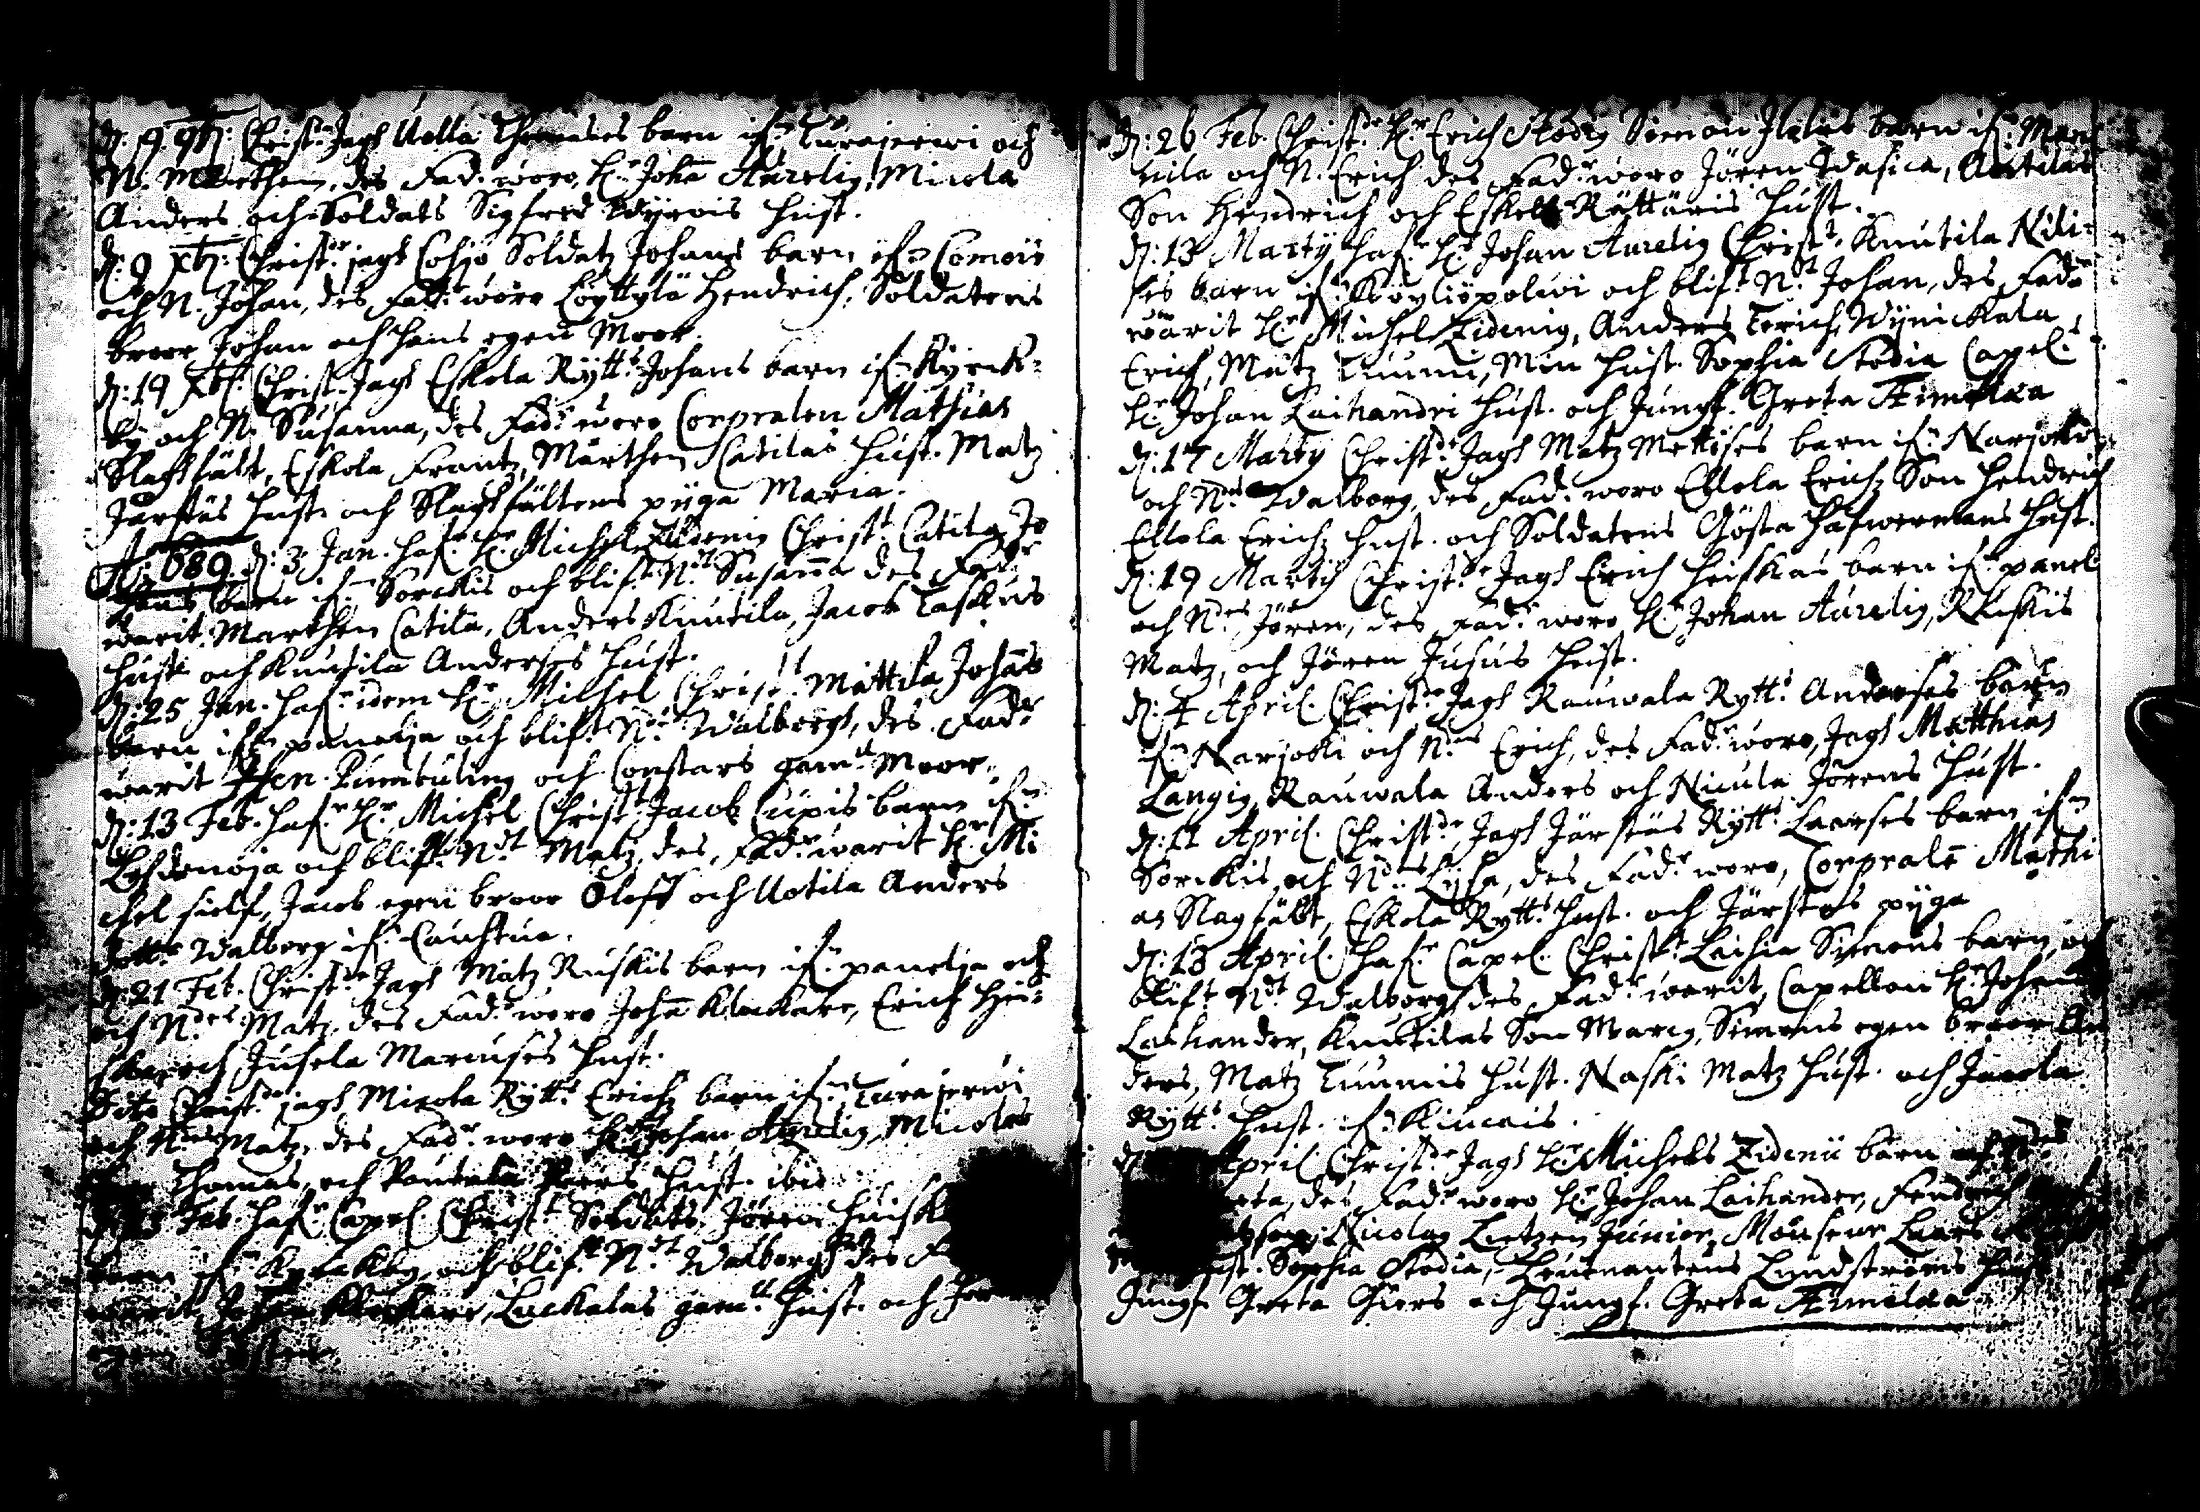 d: 9 9b: Christ. Jagh Uolla Thomases barn if: Turajerwi och
N. Marthen, des Fad: woro, H: Joha Aurelig, Micola
Anders och Soldats Sigfred Wijrois Hust.
d: 9 Xb: Christ: jagh Cohjo Soldatz Johans barn if: Comois
och N. Johan, des Fad: woro Löyttylä Hendrich, Soldatens
broor Johan och hans egen Moor.
d: 19 Xb: Christ. Jagh Eskola Rytt: Johans barn if: Kyrck-
by och N. Susanna, des Fad: woro Corpralen Mathias
Slagfält, Eskola Frantz, Märthen Catilas Hust. Matz
Jarstäs Hust. och Slagfältens pyga Maria.
A: 689. d: 3 Jan. haf: H: Michel Zidenig Christ: Catila Jo
hans barn if: Sorckis och blift N:dt Susanna des Fad:
warit Marthen Catila, Anders Knutila, Jacob Laskus
hust. och Knutila Anderses Hust.
d: 25 Jan. haf: idem H: Michel Christ: Mattila Johans
barn if: panelja och blift N:dt Walborgh, des Fad:
warit och Constars gam: Moor.
d: 13 Feb. haf: H: Michel Christ: Jacob Cupis barn if:
och blift N:dt Matz, des Fad: warit H: Mi
chel sielf, Jacobs egen broor Oloff och Uotila Anders
dotter Walborg if: Cauhtua.
d: 21 Feb. Christ: Jagh Matz Ruskis barn if: panelja och
och N:des Matz, des Fad: woro Joha Klockare, Erich Hei-
skas och Jusela Marcuses Hust.
Dito Christ: jagh Micola Rytt: Erichs barn if: Turajerwi
och N:des Matz, des Fad: woro H: Johan Aurelig, Micolas
Thomas, och Pouttula Peers Hust. ibid
Feb. haf: Capel. Christ: Soldats Jören Huisk
barn if: Kyrckby och blift N:dt Walborgh des F
warit Johan Klockare, Luckalas gam: Hust. och Jör
egen
d: 26 Feb. Christ: H: Erich Stodig Simon Jlolas barn if: Man
nila och N. Erich des Fad: woro Jören Wasica, Anttilas
Son Hendrich och Eskell Rättäris Hust.
d: 13 Marty haf: H: Johan Aurelig Christ: Knutila Nili-
ses barn if: Köyliöpolwi och blift N:dt Johan, des Fad:
warit H: Michel Zidenig, Anders Lerich, Wynickala
Erich, Matz Tuumi, Min Hust. Sophia Stodia Capel:
H: Johan Laihandri Hust. och Jungf. Greta Æimelæa
d: 17 Marty Christ: Jagh Matz Mattises barn if: Narjoki
och N:des Walborg, des Fad: woro Ellola Erichs Son Hendrich
Ellola Erichs Hust. och Soldatens Gösta Hafwermans Hust.
d: 19 Marty Christ: Jagh Erich Heiskas barn if: panel
och N:des Jören, des Fad: woro H: Johan Aurelig, Ruskis
Matz, och Jören Jusus Hust.
d: 4 April. Christ: Jagh Rauwala Rytt: Anderses barn
if: Narjoki och N:des Erich, des Fad: woro, Jagh Matthias
Langig, Rauwala Anders och Nicula Jörens Hust.
d: 11 April. Christ: Jagh Järstäs Rytt: Laarses barn if:
Sorckis och N:des Lysa, des Fad: woro, Corprale Mathi
as Slagfält, Eskola Rytt: Hust. och Järstäs pyga
d: 13 April. haf: Capel. Christ: Laihia Simons barn och
blift N:dt Walborgh des Fad: warit, Capellan H: Johan
Laihander, Knuttilas Son Marcg, Simons egen broor An
ders, Matz Tuumis Hust. Naski Matz Hust. och Jaacola
Rytt: Hust. if: Kiucais.
d: April Christ: Jagh H: Michels Zidenii barn
eta, des Fad: woro H: Johan Laihander, Fendrich
Nicolag Lietzen Junior, Mouseur Laars
Hust. Sophia Stodia, Leutnantens Lundströms Hust
Jungf. Greta Giers och Jungf. Greta Æimelæa